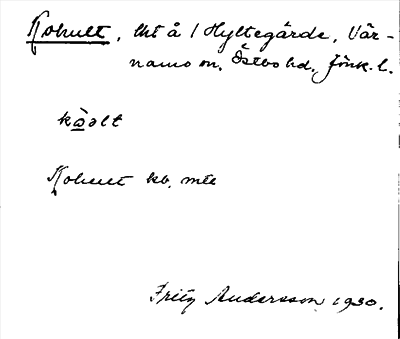 Kohult, lht å 1 Hyltegärde, Vär-
namo sn, Östbo hd., Jönk. l.
kὰɷlt
Kohult kb. mtl
Fritz Andersson 1930.